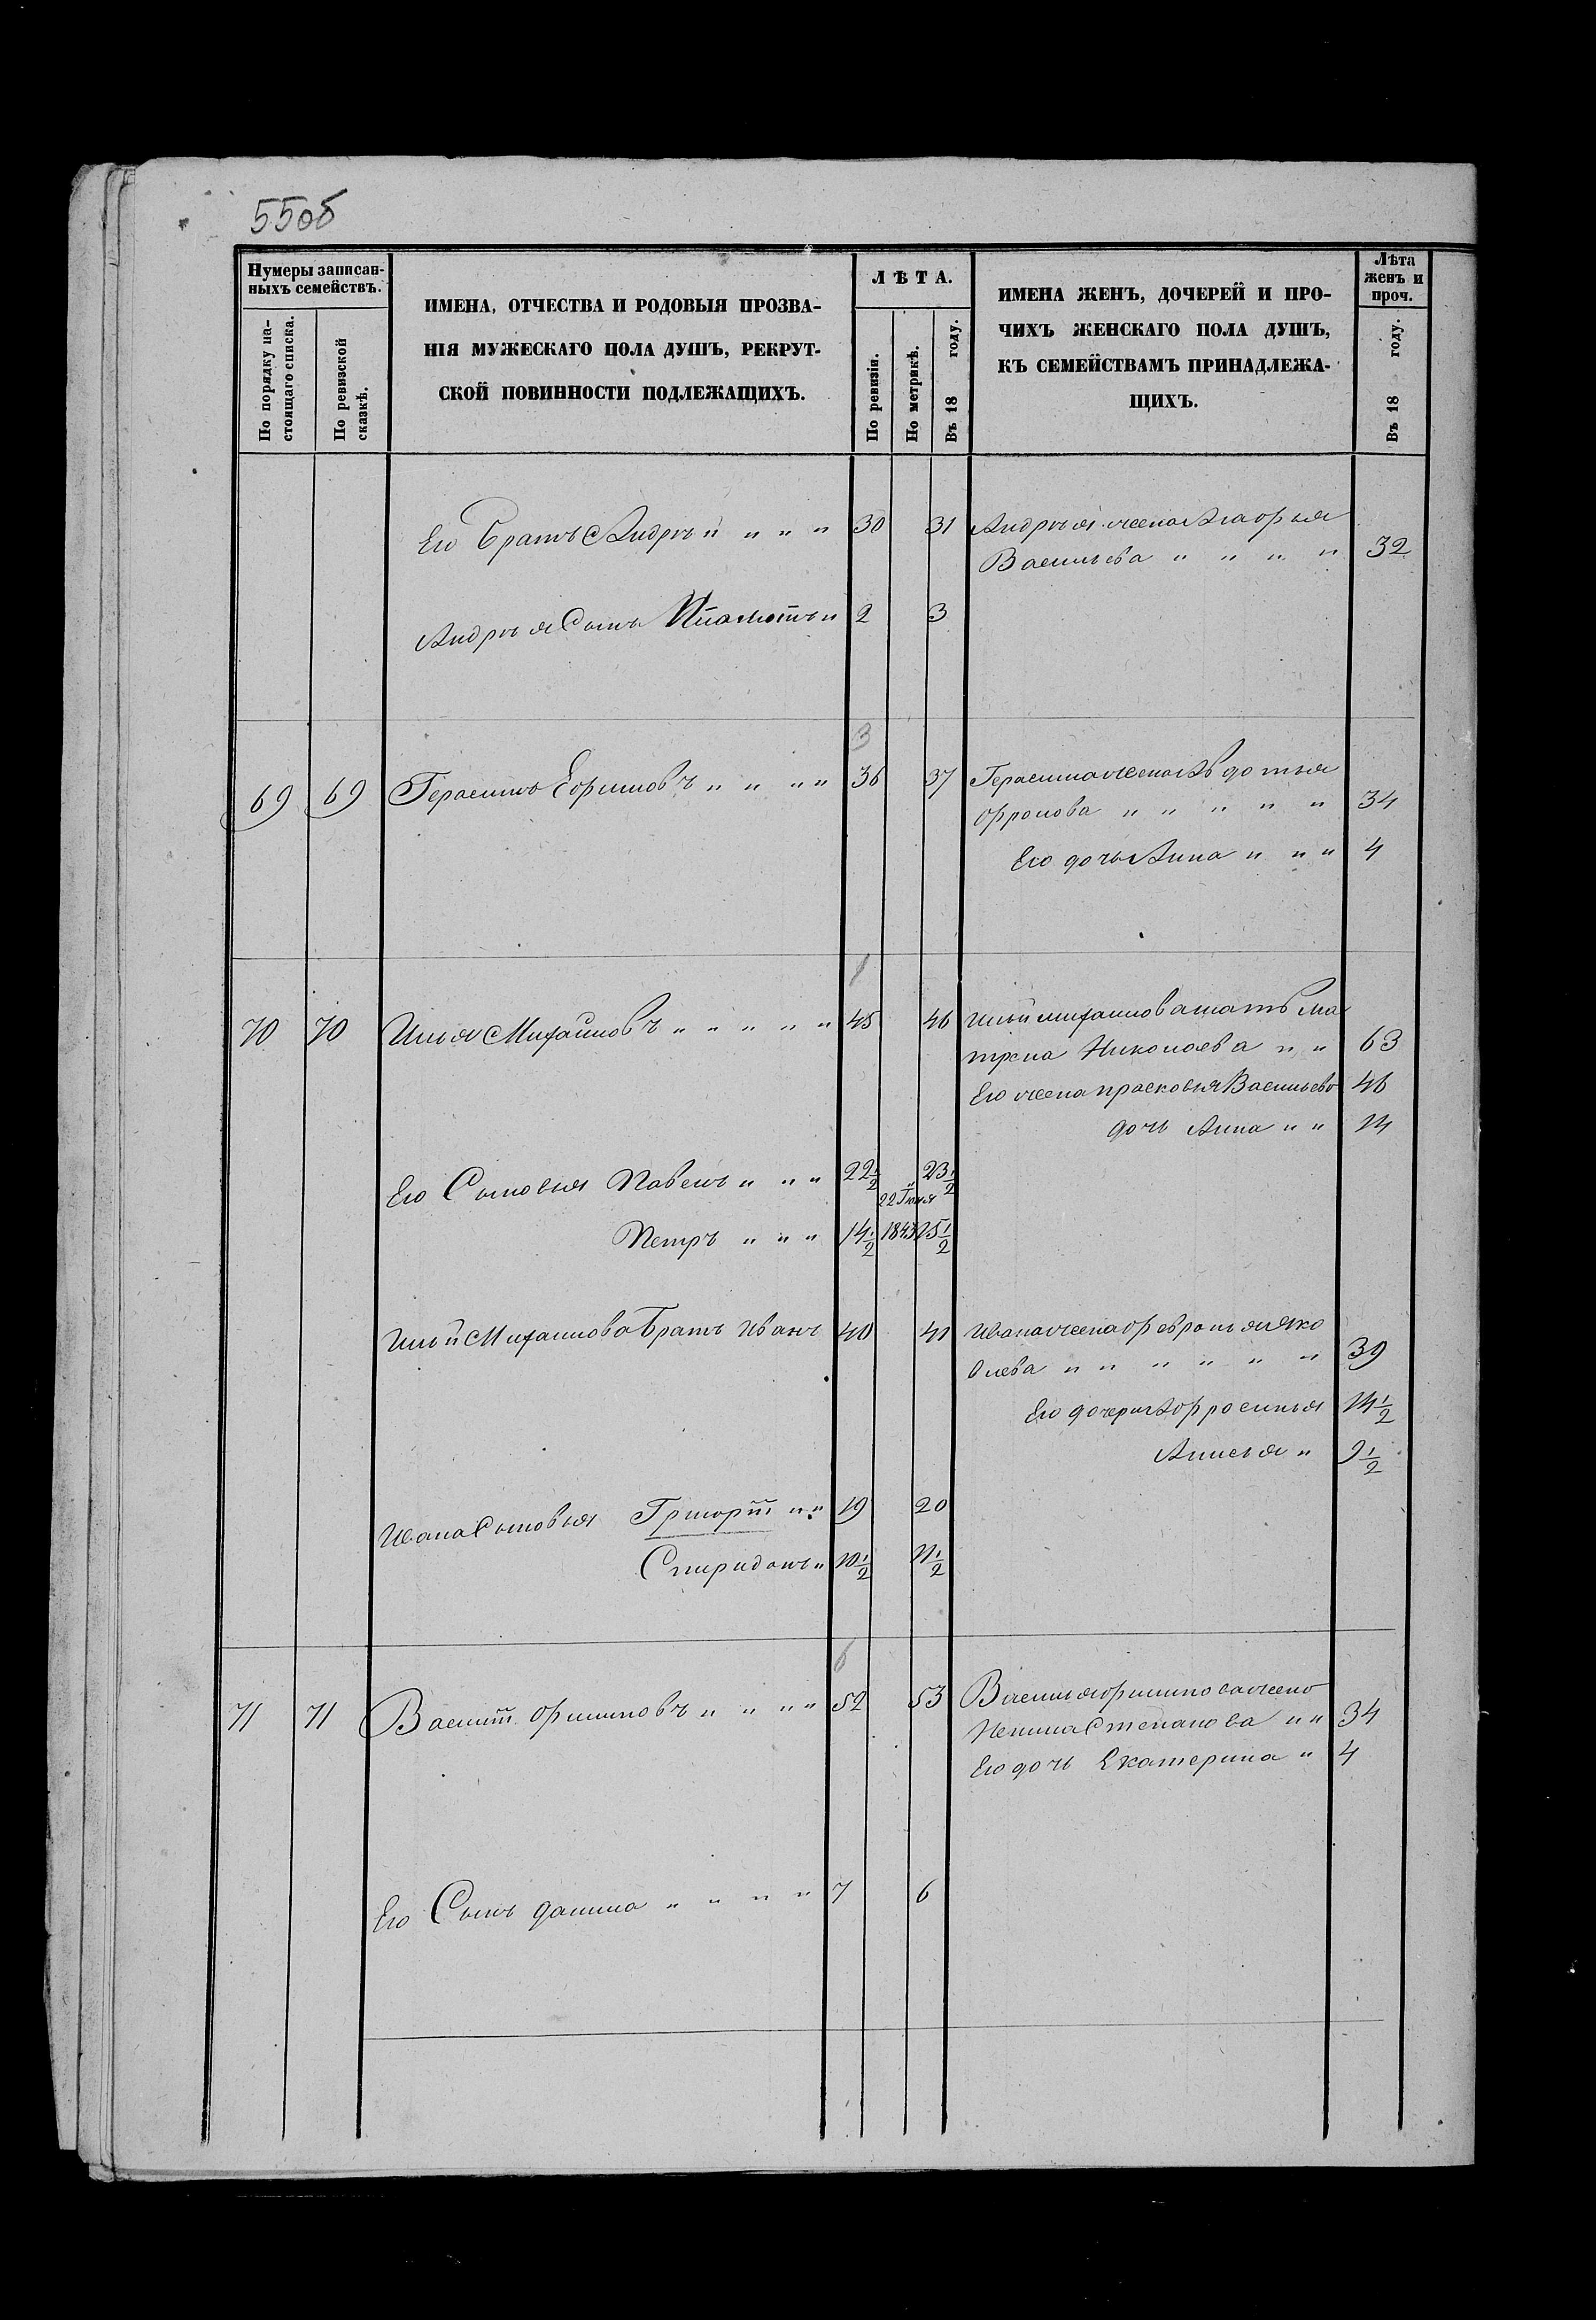 55об
Нумеры записан-
ныхъ семействъ.
По порядку на-
стоящаго списка.
По ревизской
сказкѣ.
ИМЕНА, ОТЧЕСТВА И РОДОВЫЯ ПРОЗВА-
НІЯ МУЖЕСКАГО ПОЛА ДУШЪ, РЕКРУТ-
СКОЙ ПОВИННОСТИ ПОДЛЕЖАЩИХЪ.
ЛѢТА.
По ревизіи.
По метрикѣ.
Въ 18 году.
ИМЕНА ЖЕНЪ, ДОЧЕРЕЙ И ПРО-
ЧИХЪ ЖЕНСКАГО ПОЛА ДУШЪ,
КЪ СЕМЕЙСТВАМЪ ПРИНАДЛЕЖА-
ЩИХЪ.
Лѣта
женъ и
проч.
Въ 18 году.
Его Братъ Андрѣй " " " 30 31 Андрѣя жена
Васильева " " " " 32
Андрѣя Сынъ 2 3
3
69 69 Герасимъ Ефимовъ " " " " 36 37 Герасима жена Авдотья
Фролова " " " " " 34
Его дочь Анна " " " 4
1
70 70 Илья Михайловъ " " " " " 45 46 Ильи михаилова мать Ма
трена Николаева " " 63
Его жена прасковья Васильева 46
дочь Анна " " 14
Его Сыновья Павелъ " " " 22 1/2 23 1/2
22 Іюня
Петръ " " " 14 1/2 1843 15 1/2
Ильи Михаилова Братъ Иванъ 40 41 Ивана жена яко
влева " " " " " " 39
Его дочери Афросинья 14 1/2
Анисья " 9 1/2
Ивана Сыновья Григорій " " 19 20
Спиридонъ " 10 1/2 11 1/2
6
71 71 Василій Филиповъ " " " " 52 53 Василья филипова жена
Степанова " " 34
Его дочь Екатерина " 4
Его Сынъ данила " " " " 7 6